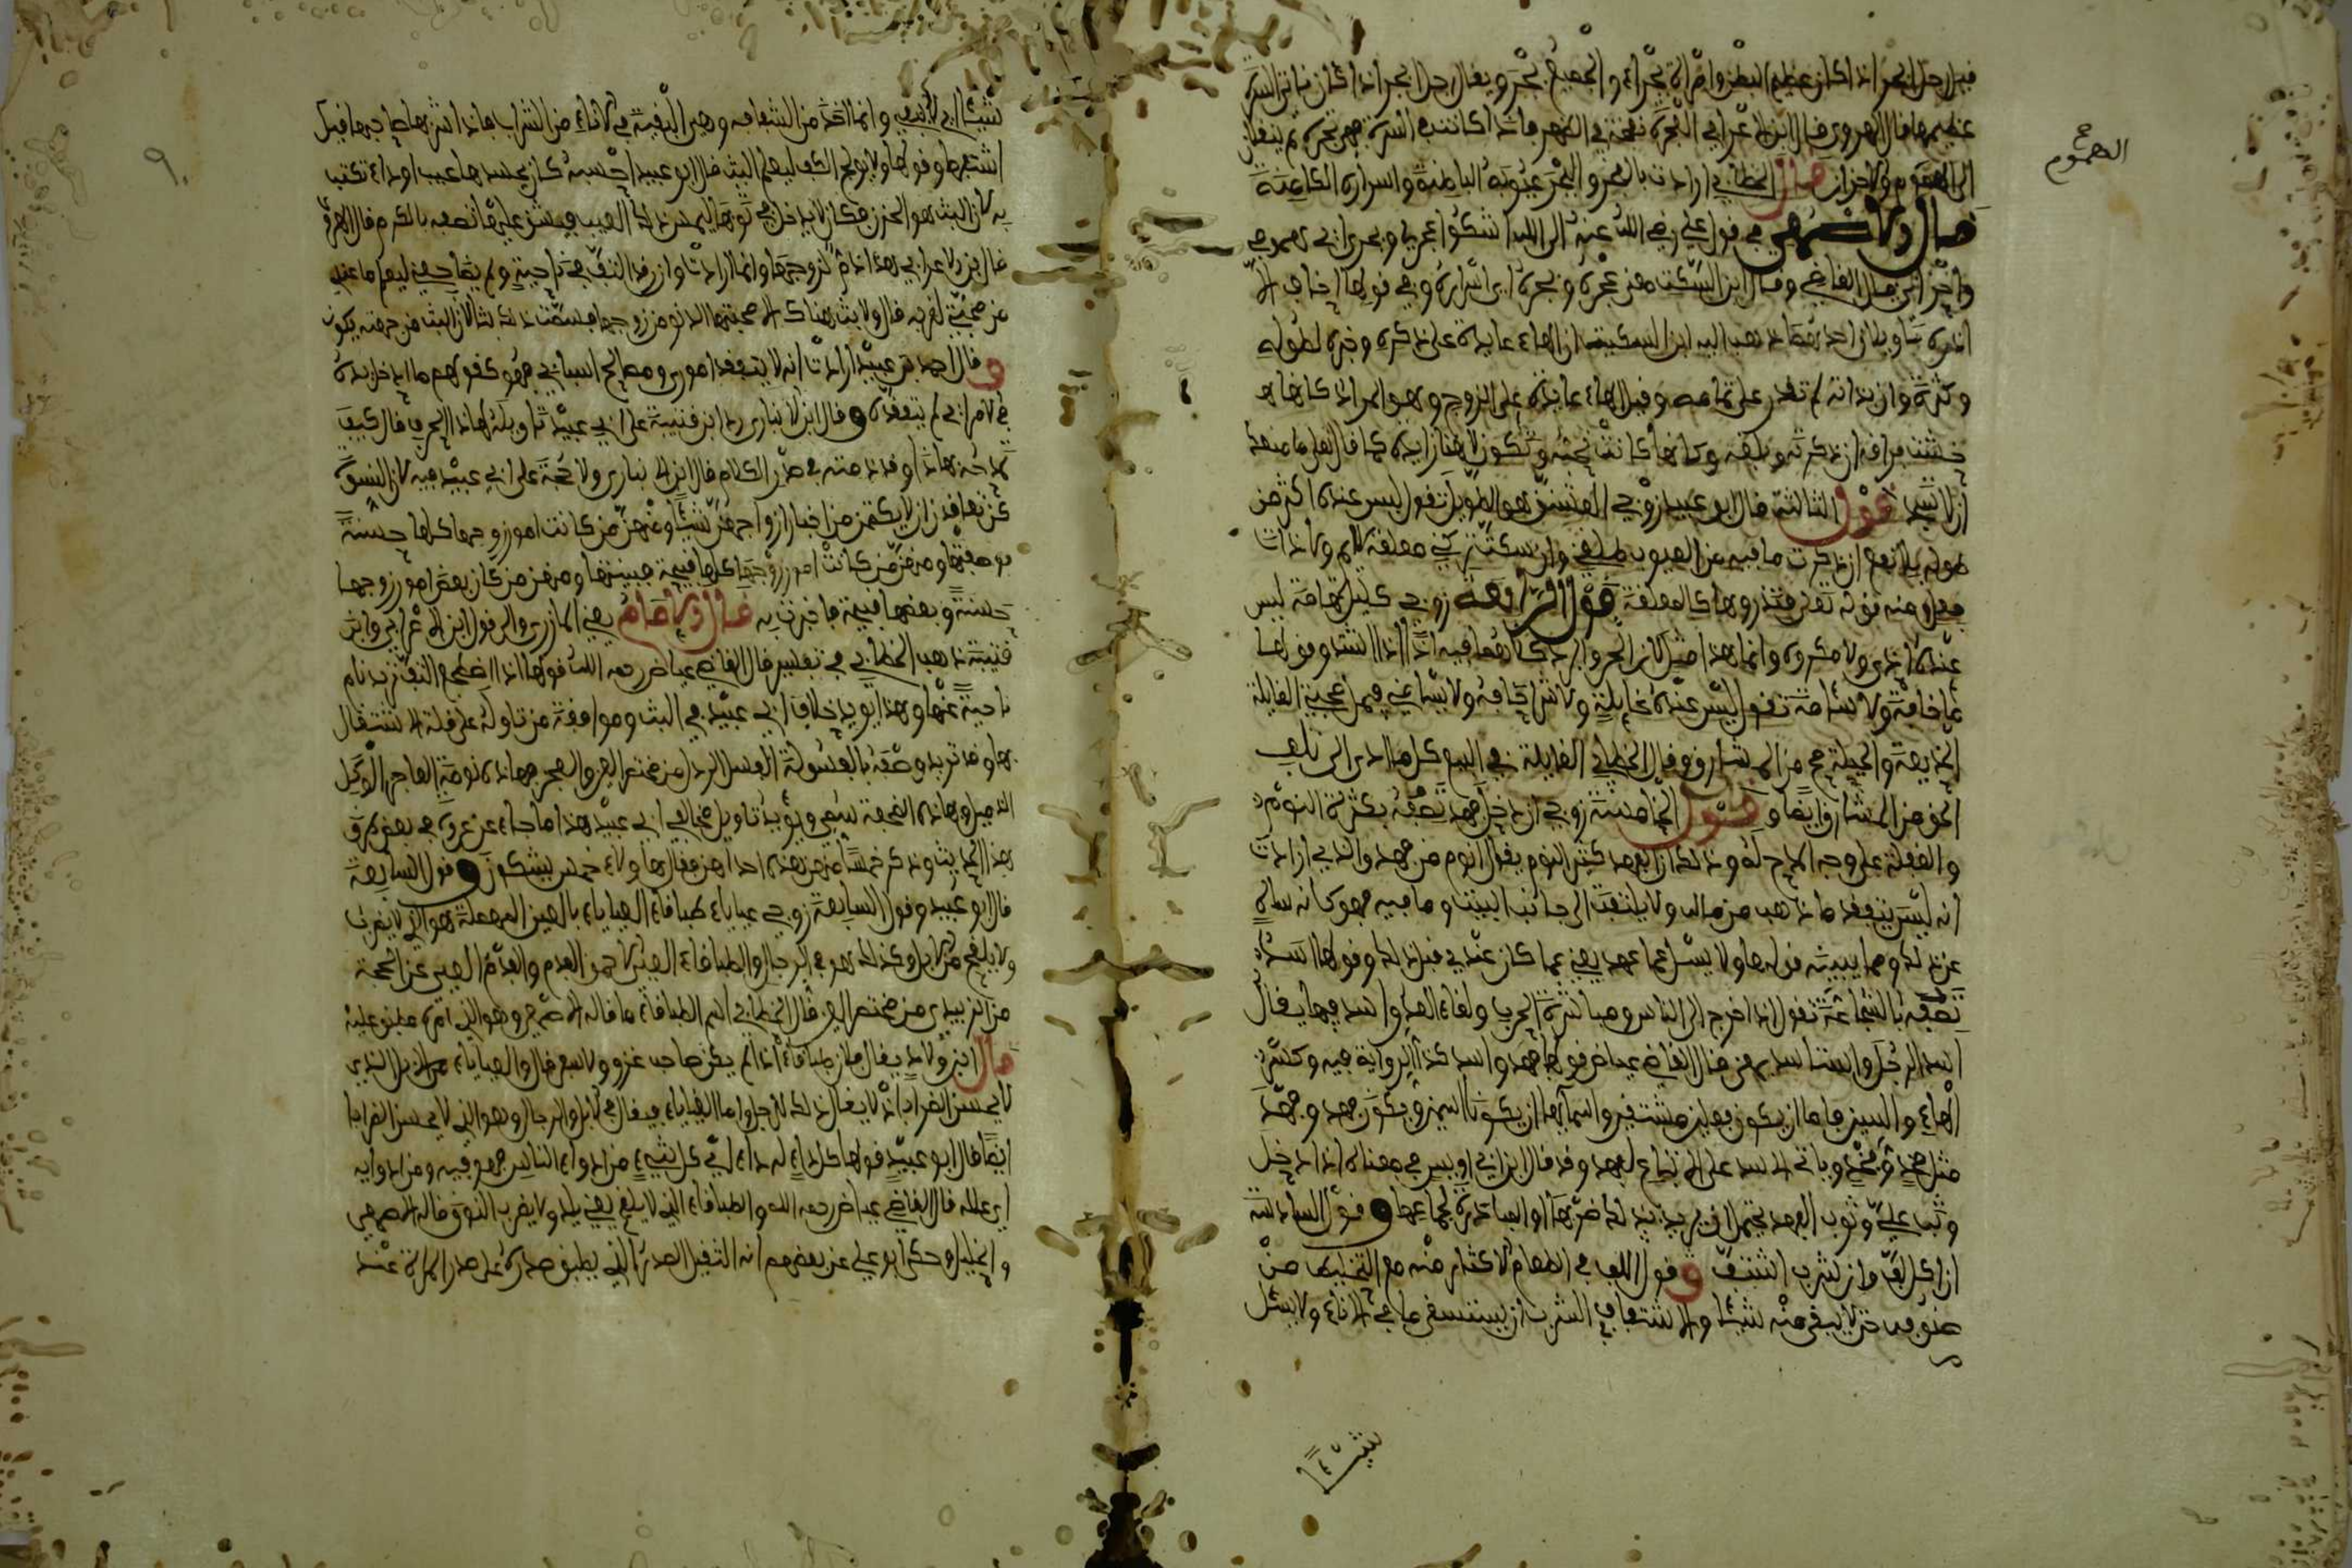 فيل رجل ابجر اذا كان عظيم البطن وامراة بجراء والجميع بجر ويقال رجل ابجر اذا كان ناتئ السرة
عظيمها قال الهروي قال ابن الاعرابي العجرة نفخة في الظهر فاذا كانت في السرة فهي بجرة ثم ينقلان
الى الهموم والاحزان قال الخطابي ارادت بالعجر والبجر عيوبه الباطنة واسراره الكامنة
الهموم
قال الاصمعي في قول علي رضي الله عنه الى الله اشكوا عجري وبجري اي همومي
واحزاني قال القاضي وقال ابن السكيت معنى عجره وبجره اي اسراره وفي قولها اخاف الا
اذره تاويلان احدهما ذهب اليه ابن السكيت ان الهاء عايدة على ذكره وخبره لطوله
وكثرته وان بداته لم تقدر على تمامه وقيل الهاء عايدة على الزوج وهو المراد كانها
خشيت فراقه ان ذكرته وبلغه وكانها كانت تحبه وتكون لا هنا زايدة كما قال تعلى ما منعك
ان لا تسجد قول الثالثة قال ابو عبيد زوجي العشنق هو الطويل تقول ليس عنده اكثر من
طوله بلا نفع ان ذكرت ما فيه من العيوب طلقني وان سكت تركني معلقة لا ايم ولا ذات
بعل ومنه قوله تعلى فتذروها كالمعلقة قول الرابعة زوجي كليل تهامة ليس
عنده اذى ولا مكروه وانما هذا مثل لان الحر والبرد كلاهما فيه اذا اشتد وقولها
لا مخافة ولا سئامة تقول ليس عنده غايلة ولا شر اخافه ولا يسئمني فيمل صحبتي الغايلة
الخديعة والحيلة صح من المشارق وقال الخطابي الغايلة في البيع كل ما ادى الى تلف
الحق من المشارق ايضا وقول الخامسة زوجي ان دخل فهد تصفه بكثرة النوم
والغفلة على وجه المدح له وذلك ان الفهد كثير النوم يقال انوم من فهد والذي ارادت
انه ليس يتفقد ما ذهب من ماله ولا يلتفت الى جانب البيت وما فيه فهو كانه ساه
عن ذلك ومما يبينه قولها ولا يسئل عما عهد يعني عما كان عندي قبل ذلك وقولها اسد
تصفه بالشجاعة تقول اذا خرج الى الناس ومباشرة الحرب ولقاء العدو اسد فيها يقال
اسد الرجل واستاسد بمعنى قال القاضي عياض قولها فهد واسد كذا الرواية فيه وكسر
الهاء والسين فاما ان يكون فعلين مشتقين واسماهما ان يكونا اسمين ويكون فهد وفهد
مثل فخذ وفخذ وياتي اسد على الاتباع لفهد وقد قال ابن ابي اويس في معناه اذا دخل
وثب علي وثوب الفهد يحتمل انه يريد بذلك ضربها او المبادرة لجماعها وقول السادسة
ان اكل لف وان شرب اشتف وقول اللف في الطعام الاكثار منه مع التخليط من
صنوفه حتى لا يبقى منه شيئا والاشتفاف في الشرب ان يستسقى ما في الاناء ولا يسئل
شيئا
شيئا اي لا يبقي وانما اخذ من الشفافة وهي البقية في الاناء من الشراب فاذا شربها صاحبها قيل
اشتفها وقولها ولا يولج الكف ليعلم البث قال ابو عبيد احسبه كان بجسدها عيب او داء تكتئب
به لان البث هو الحزن فكان لا يدخل يده في ثوبها ليمس ذلك العيب فيشق عليها تصفه بالكرم قال الهروي
قال ابن الاعرابي هذا ذم لزوجها وانما ارادت وان رقد التف في ناحية ولم يضاجعني ليعلم ما عندي
من محبتي لقربه قال ولا بث هناك الا محبتها الدنو من زوجها فسمت ذلك بثا لان البث من جهته يكون
وقال احمد بن عبيد ارادت انه لا يتفقد اموري ومصالح اسبابي فهو كقولهم ما ادخل يده
في الامر اي لم يتفقده وقال ابن الانباري رد ابن قتيبة على ابي عبيد تاويله لهذا الحرف قال كيف
تمدحه بهذا وقد ذمته في صدر الكلام قال ابن الانباري ولا حجة على ابي عبيد فيه لان النسوة
كن تعاقدن ان لا يكتمن من اخبار ازواجهن شيئا فمنهن من كانت امور زوجها كلها حسنة
فوصفتها ومنهن من كانت امور زوجها كلها قبيحة فبينتها ومنهن من كان بعض امور زوجها
حسنة وبعضها قبيحة فاخبرت به قال الامام يعني المازري والى قول ابن الاعرابي وابن
قتيبة ذهب الخطابي في تفسير قال القاضي عياض رحمه الله قولها اذا اضطجع التف تريد نام
ناحية عنها وهذا يؤيد خلاف ابي عبيد في البث وموافقة من تاوله على قلة الاشتغال
بها وقد تريد وصفه بالفسولة الفسل الرذل من مختصر العين والعجز فهذه نومة العاجز الوكل
الفسيل وهذه الضجعة ويؤيد تاويل مخالفي ابي عبيد هذا ما جاء عن عروة في بعض طرق
هذا الحديث وذكر خمسا منهن هذه احداهن فقال هاولاء خمس يشكون وقول السابعة
قال ابو عبيد وقول السابعة زوجي عياياء طباقاء العياياء بالعين المهملة هو الذي لا يضرب
ولا يلقح من الابل وكذلك هو في الرجال والطباقاء العيي الاحمق الفدم والفدم العيي عن الحجة
من الزبيدي من مختصر العين قال الخطابي اليم الطباقاء ما قاله الاصمعي وهو الذي امره مطبق عليه
قال ابن ولاد يقال فلان طباقاء اذا لم يكن صاحب غزو ولا سفر قال والعياياء من الابل الذي
لا يحسن الضراب اذ لا يقال ذلك للرجل واما العياياء فيقال في الابل والرجال وهو الذي لا يحسن الضراب
ايضا قال ابو عبيد قولها كل داء له داء اي كل شيء من ادواء الناس فهو فيه ومن ادوايه
اي علله قال القاضي عياض رحمه الله والطباقاء الذي لا يلقح يعني يلد ولا يضرب النوق قاله الاصمعي
والخليل وحكى ابو علي عن بعضهم انه الثقيل الصدر الذي يطبق صدره على صدر المراة عند